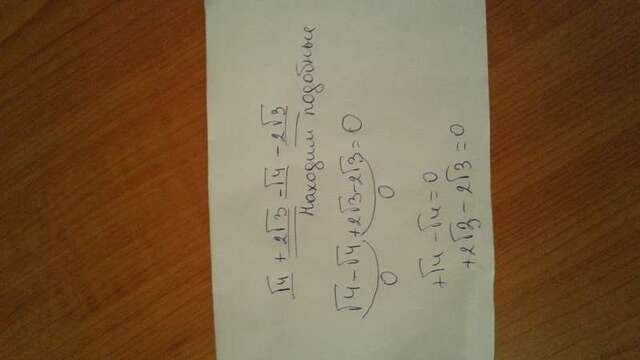 √4 + 2√3 - √4 - 2√3
Находим подобные
√4 - √4 + 2√3 - 2√3 = 0
0 0
+√4 - √4 = 0
+2√3 - 2√3 = 0